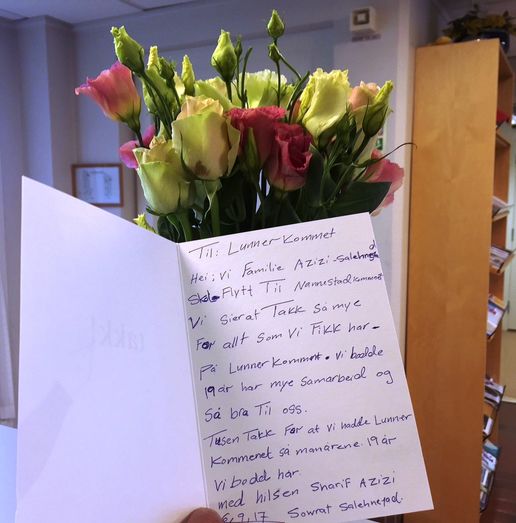 Til: Lunner Kommet
Hei; Vi Familie Azizi-Salehnejad
Skal Flytt Til Nannestad kommune
Vi sierat Takk så mye
For allt som Vi Fikk har-
på Lunner Komment. Vi bodde
19 år har mye samarbeid og
så bra Til oss.
Tusen Takk For at vi hadde Lunner
Kommenet så manårene. 19 år
Vi bodd har.
med hilsen Sharif Azizi
6,9,17 Sowrat Salehnejad.
takk!